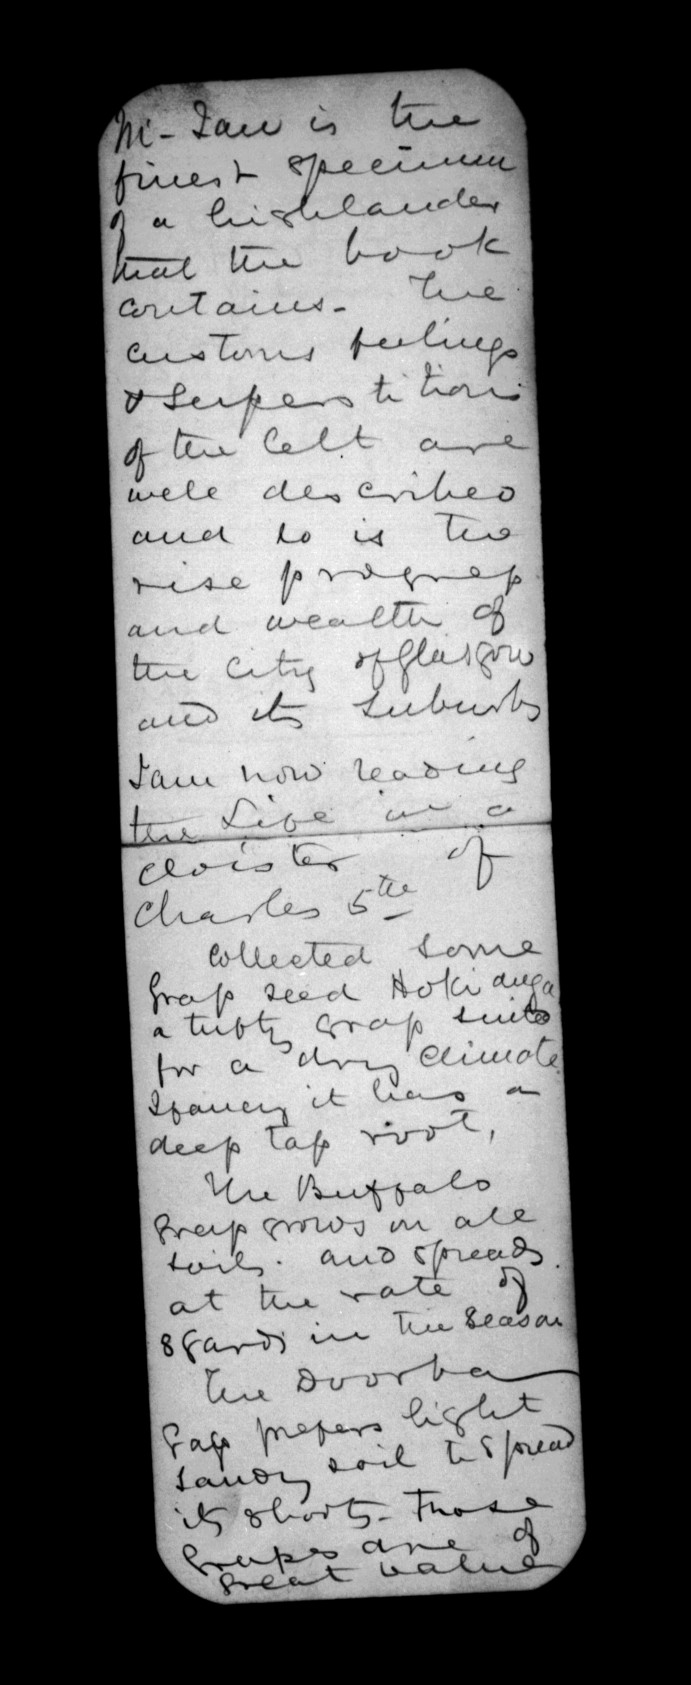 Mc-Ian is the
finest specimen
of a highlander
that the book
contains- the
customs feelings
& superstitions
of the Celt are
well described
and so is the
rise progress
and wealth of
the City of Glasgow
and its suburbs
I am now reading
the Life in a
cloister of
Charles 5th
Collected some
grass seed Hokianga
a tufty grass suits
for a dry climate
I fancy it has a
deep tap root,
The Buffalo
grass grows on all
soils. and spreads
at the rate of
8 yards in the season
The Doorba
Gass prefers light
sandy soil to spread
its shoots- those
grasses are of
great value